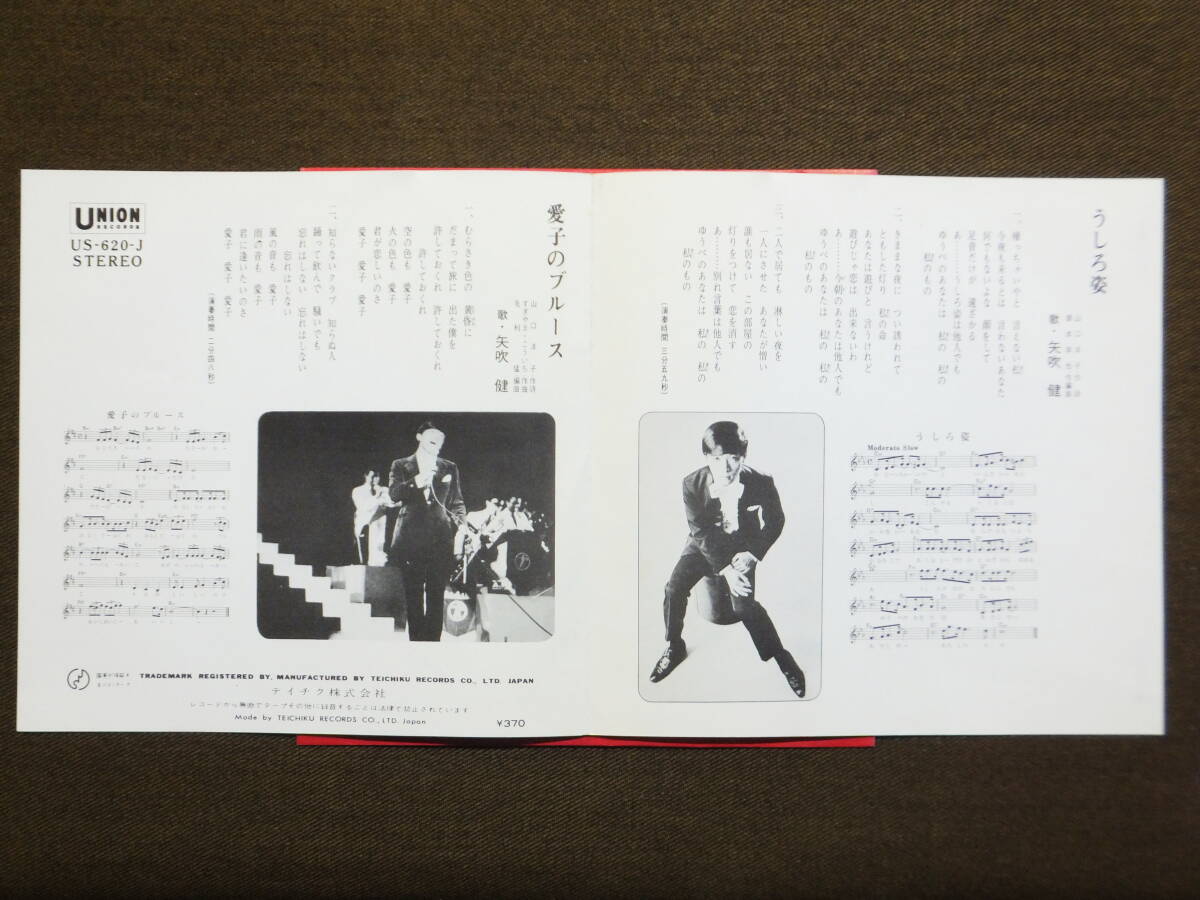 うしろ姿
歌・矢吹 健
一、帰っちゃいやと 言えない私
今夜も来るとは 言わないあなた
何でもないよな 顔をして
足音だけが 遠ざかる
あ………うしろ姿は他人でも
ゆうべのあなたは 私の 私の
私のもの
二、きままな夜に つい誘われて
ともした灯り 私の命
あなたは遊びと 言うけれど
遊びじゃ恋は 出来ないわ
あ………今朝のあなたは他人でも
ゆうべのあなたは 私の 私の
私のもの
三、二人で居ても 淋しい夜を
一人にさせた あなたが憎い
誰も居ない この部屋の
灯りをつけて 恋を消す
あ………別れ言葉は他人でも
ゆうべのあなたは 私の 私の
私のもの
（演奏時間 三分五九秒）
うしろ姿
Moderato Slow
UNION
RECORDS
US-620-J
STEREO
愛子のブルース
山口洋子 作詩
すずやま・こういち 作曲
毛利猛 編曲
歌・矢吹 健
一、むらさき色の 黄昏に
だまって旅に 出た僕を
許しておくれ 許しておくれ
許しておくれ
空の色も 愛子
火の色も 愛子
君が恋しいのさ
愛子 愛子 愛子
二、知らないクラブ 知らぬ人
踊って飲んで 騒いでも
忘れはしない 忘れはしない
忘れはしない
風の音も 愛子
雨の音も 愛子
君に逢いたいのさ
愛子 愛子 愛子
（演奏時間 二分四八秒）
愛子のブルース
TRADEMARK REGISTERED BY, MANUFACTURED BY TEICHIKU RECORDS CO., LTD. JAPAN
テイチク株式会社
レコードから無断でテープその他に録音することは法律で禁止されています
Made by TEICHIKU RECORDS CO., LTD. Japan
¥370